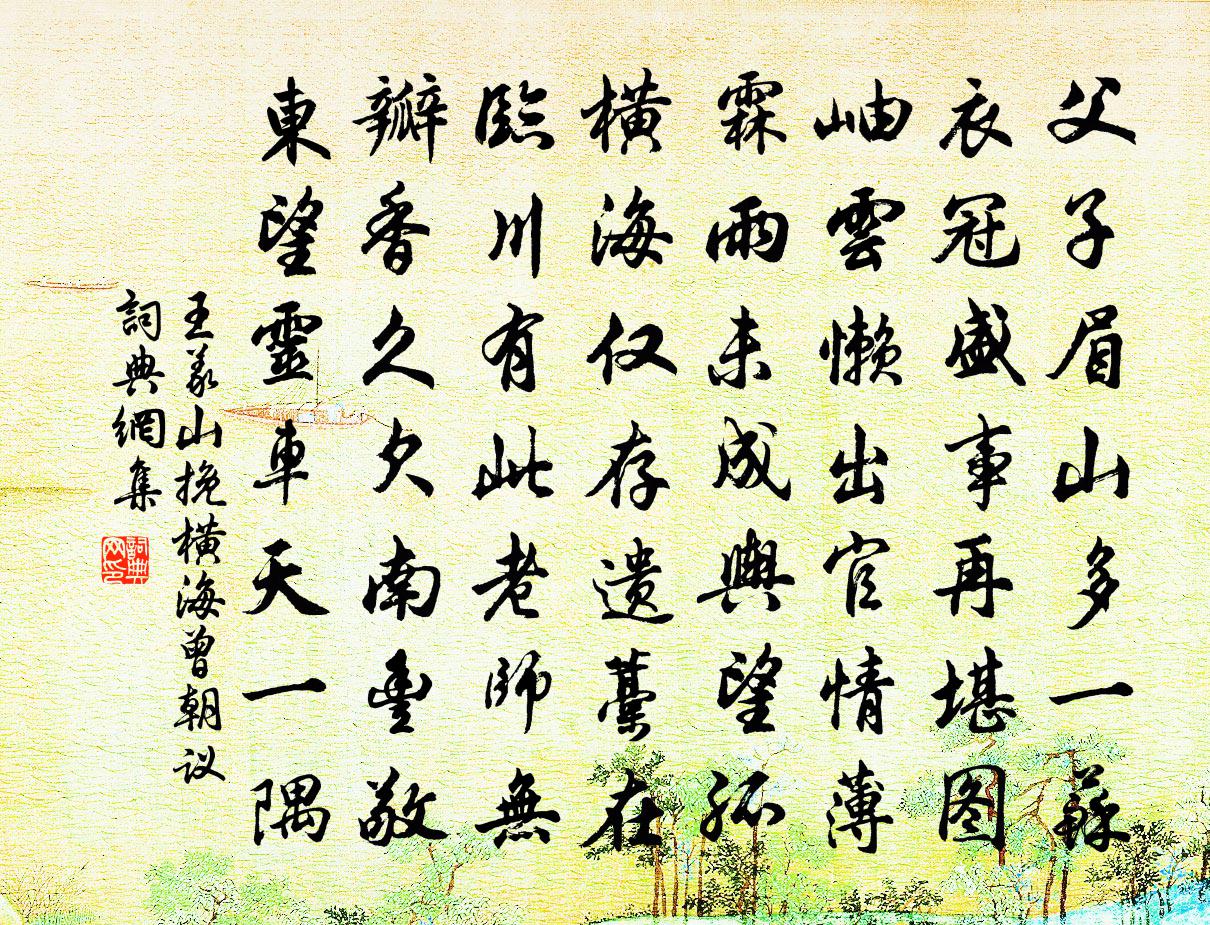 父子眉山多一蘇
衣冠盛事再堪图
岫雲懒出官情薄
霖雨未成輿望孤
橫海仅存遗藁在
臨川有此老師無
瓣香久欠南豊敬
東望靈車天一隅
王义山挽橫海曾朝议
詞典網集
詞典网印